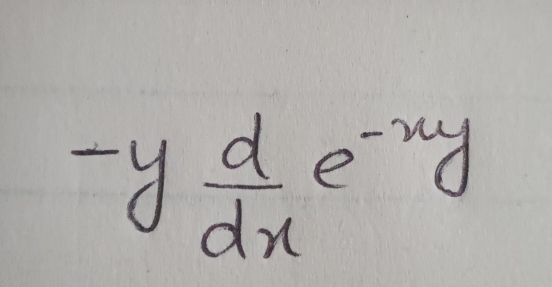 -y d/dx e^{-xy}